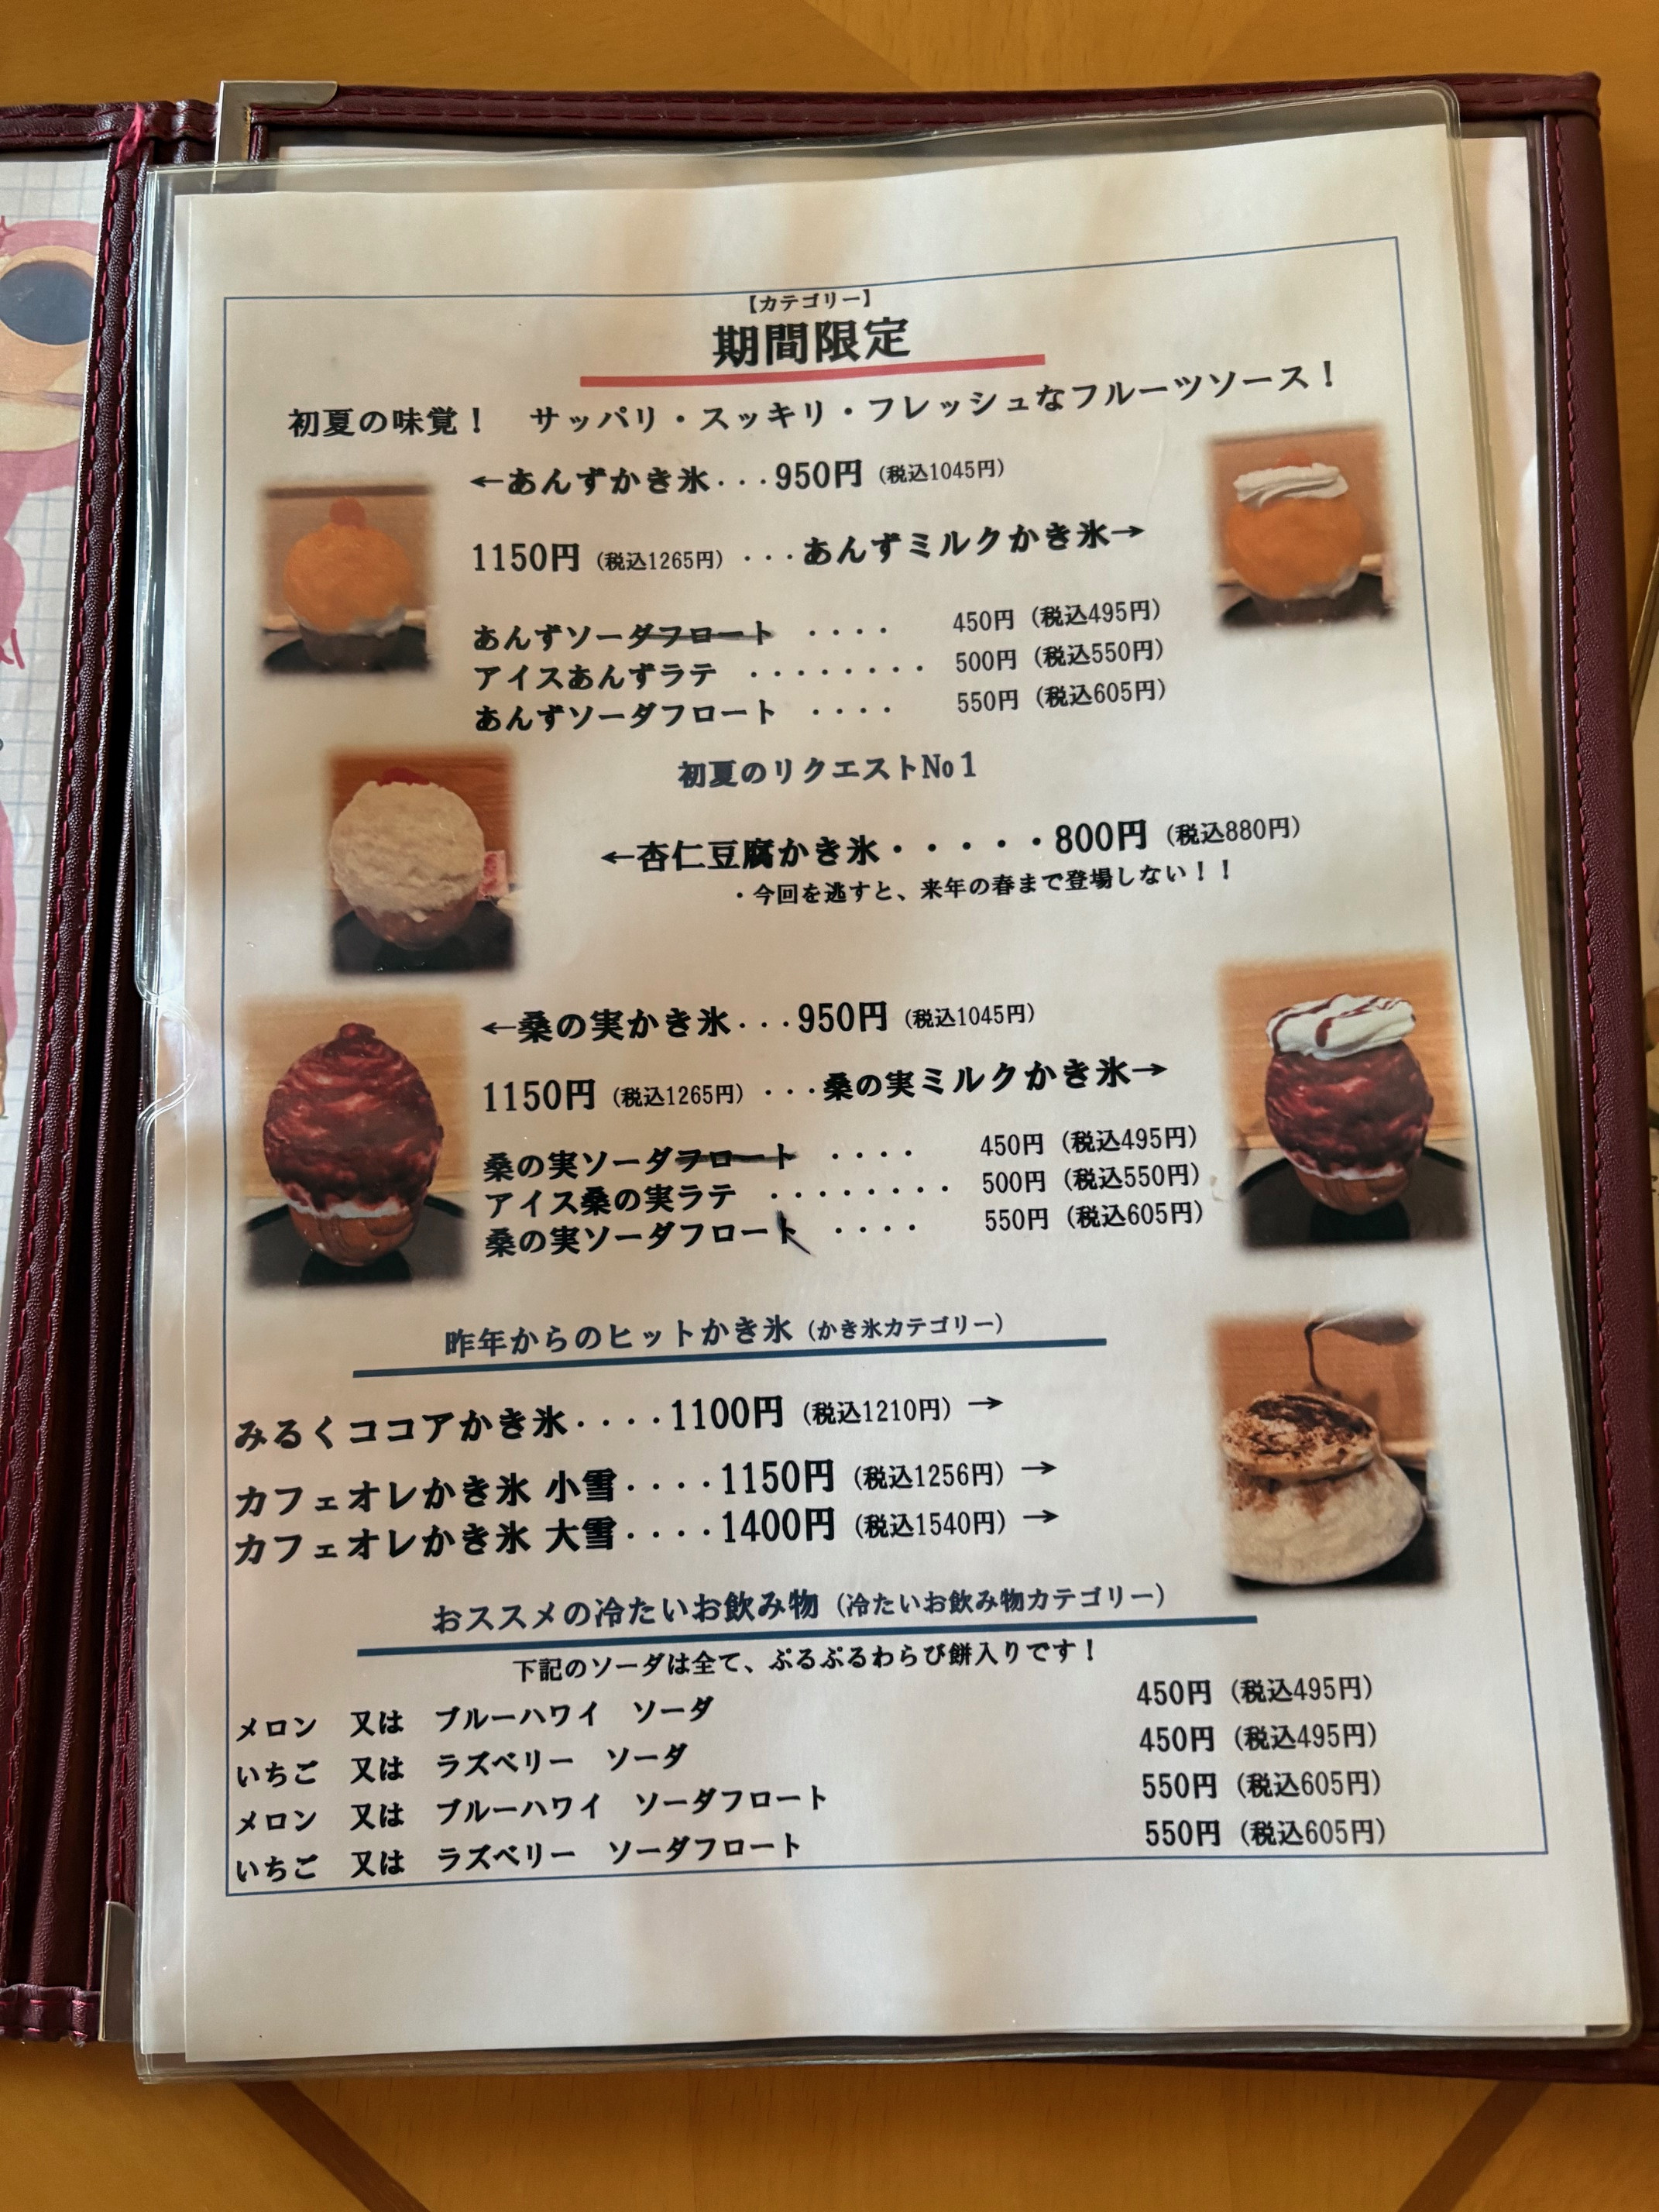 【カテゴリー】
期間限定
初夏の味覚！　サッパリ・スッキリ・フレッシュなフルーツソース！
←あんずかき氷・・・950円（税込1045円）
1150円（税込1265円）・・・あんずミルクかき氷→
あんずソーダフロート　・・・・　450円（税込495円）
アイスあんずラテ　・・・・・・・・　500円（税込550円）
あんずソーダフロート　・・・・　550円（税込605円）
初夏のリクエスト№1
←杏仁豆腐かき氷・・・・・800円（税込880円）
・今回を逃すと、来年の春まで登場しない！！
←桑の実かき氷・・・950円（税込1045円）
1150円（税込1265円）・・・桑の実ミルクかき氷→
桑の実ソーダフロート　・・・・　450円（税込495円）
アイス桑の実ラテ　・・・・・・・・　500円（税込550円）
桑の実ソーダフロート　・・・・　550円（税込605円）
昨年からのヒットかき氷（かき氷カテゴリー）
みるくココアかき氷・・・・1100円（税込1210円）→
カフェオレかき氷 小雪・・・・1150円（税込1256円）→
カフェオレかき氷 大雪・・・・1400円（税込1540円）→
おススメの冷たいお飲み物（冷たいお飲み物カテゴリー）
下記のソーダは全て、ぷるぷるわらび餅入りです！
メロン　又は　ブルーハワイ　ソーダ　450円（税込495円）
いちご　又は　ラズベリー　ソーダ　450円（税込495円）
メロン　又は　ブルーハワイ　ソーダフロート　550円（税込605円）
いちご　又は　ラズベリー　ソーダフロート　550円（税込605円）